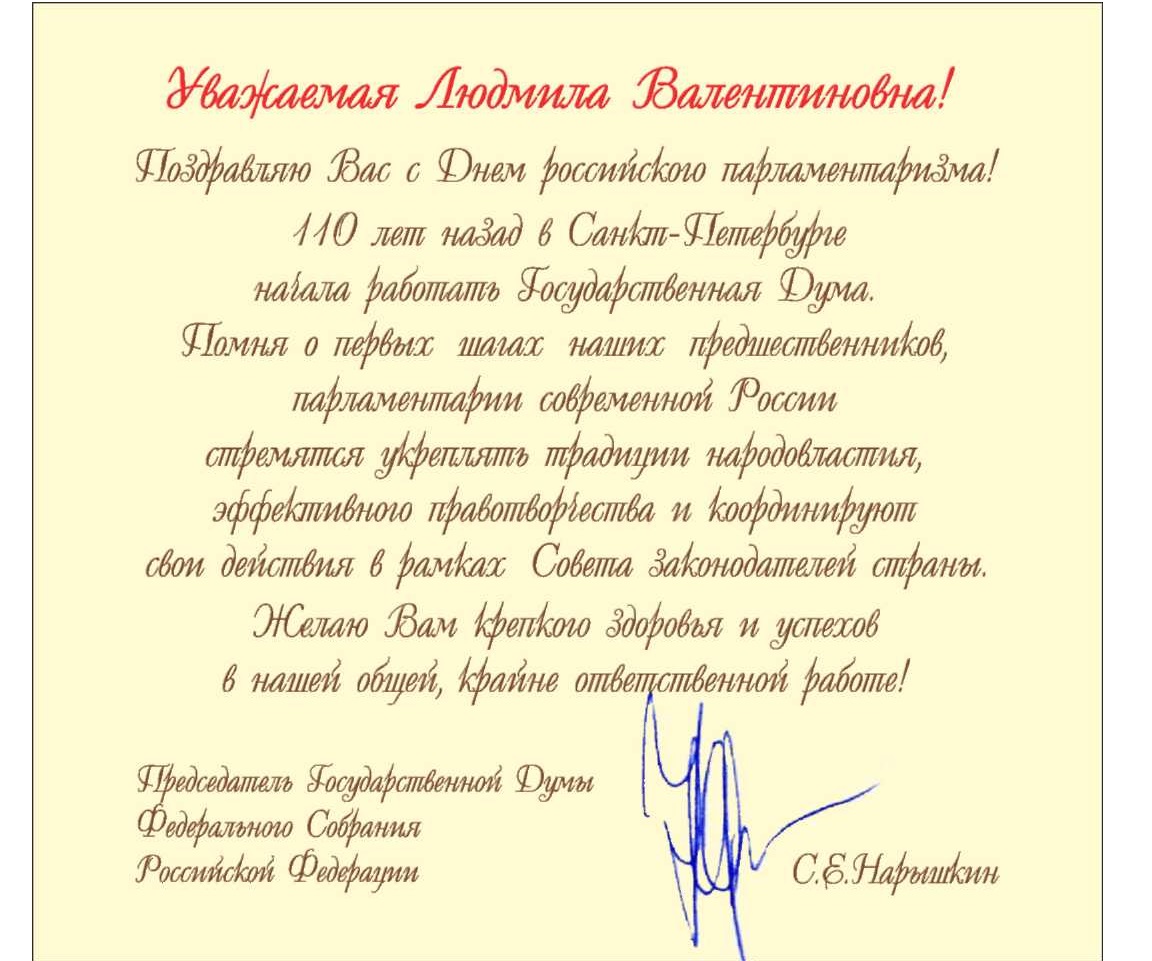 Уважаемая Людмила Валентиновна!
Поздравляю Вас с Днем российского парламентаризма!
110 лет назад в Санкт-Петербурге
начала работать Государственная Дума.
Помня о первых шагах наших предшественников,
парламентарии современной России
стремятся укреплять традиции народовластия,
эффективного правотворчества и координируют
свои действия в рамках Совета законодателей страны.
Желаю Вам крепкого здоровья и успехов
в нашей общей, крайне ответственной работе!
Председатель Государственной Думы
Федерального Собрания
Российской Федерации
С.Е.Нарышкин